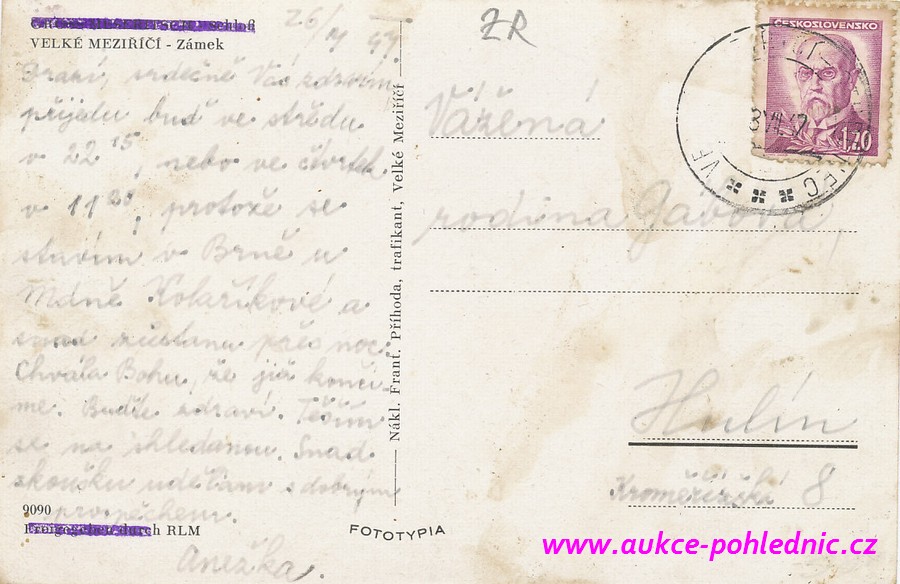 Schloß
VELKÉ MEZIŘÍČÍ - Zámek
26/ 47
Drazí, srdečně Vás zdravím
přijedu buď ve středu
v 22 15, nebo ve čtvrtek
v 11 20, protože se
stavím v Brně u
Mdně Kolaříkové a
snad zůstanu přes noc.
Chvála Bohu, že již konČí-
me. Buďte zdraví. Těším
se na shledanou. Snad
zkoušku udělám s dobrým
prospěchem.
Anežka.
9090
Freigegeben durch RLM
Nákl. Frant. Příhoda, trafikant, Velké Meziříčí
FOTOTYPIA
ZR
ČESKOSLOVENSKO
1,20
VII.47
Vážená
rodina Gabova,
Hulín
Kroměřížská 8
www.aukce-pohlednic.cz